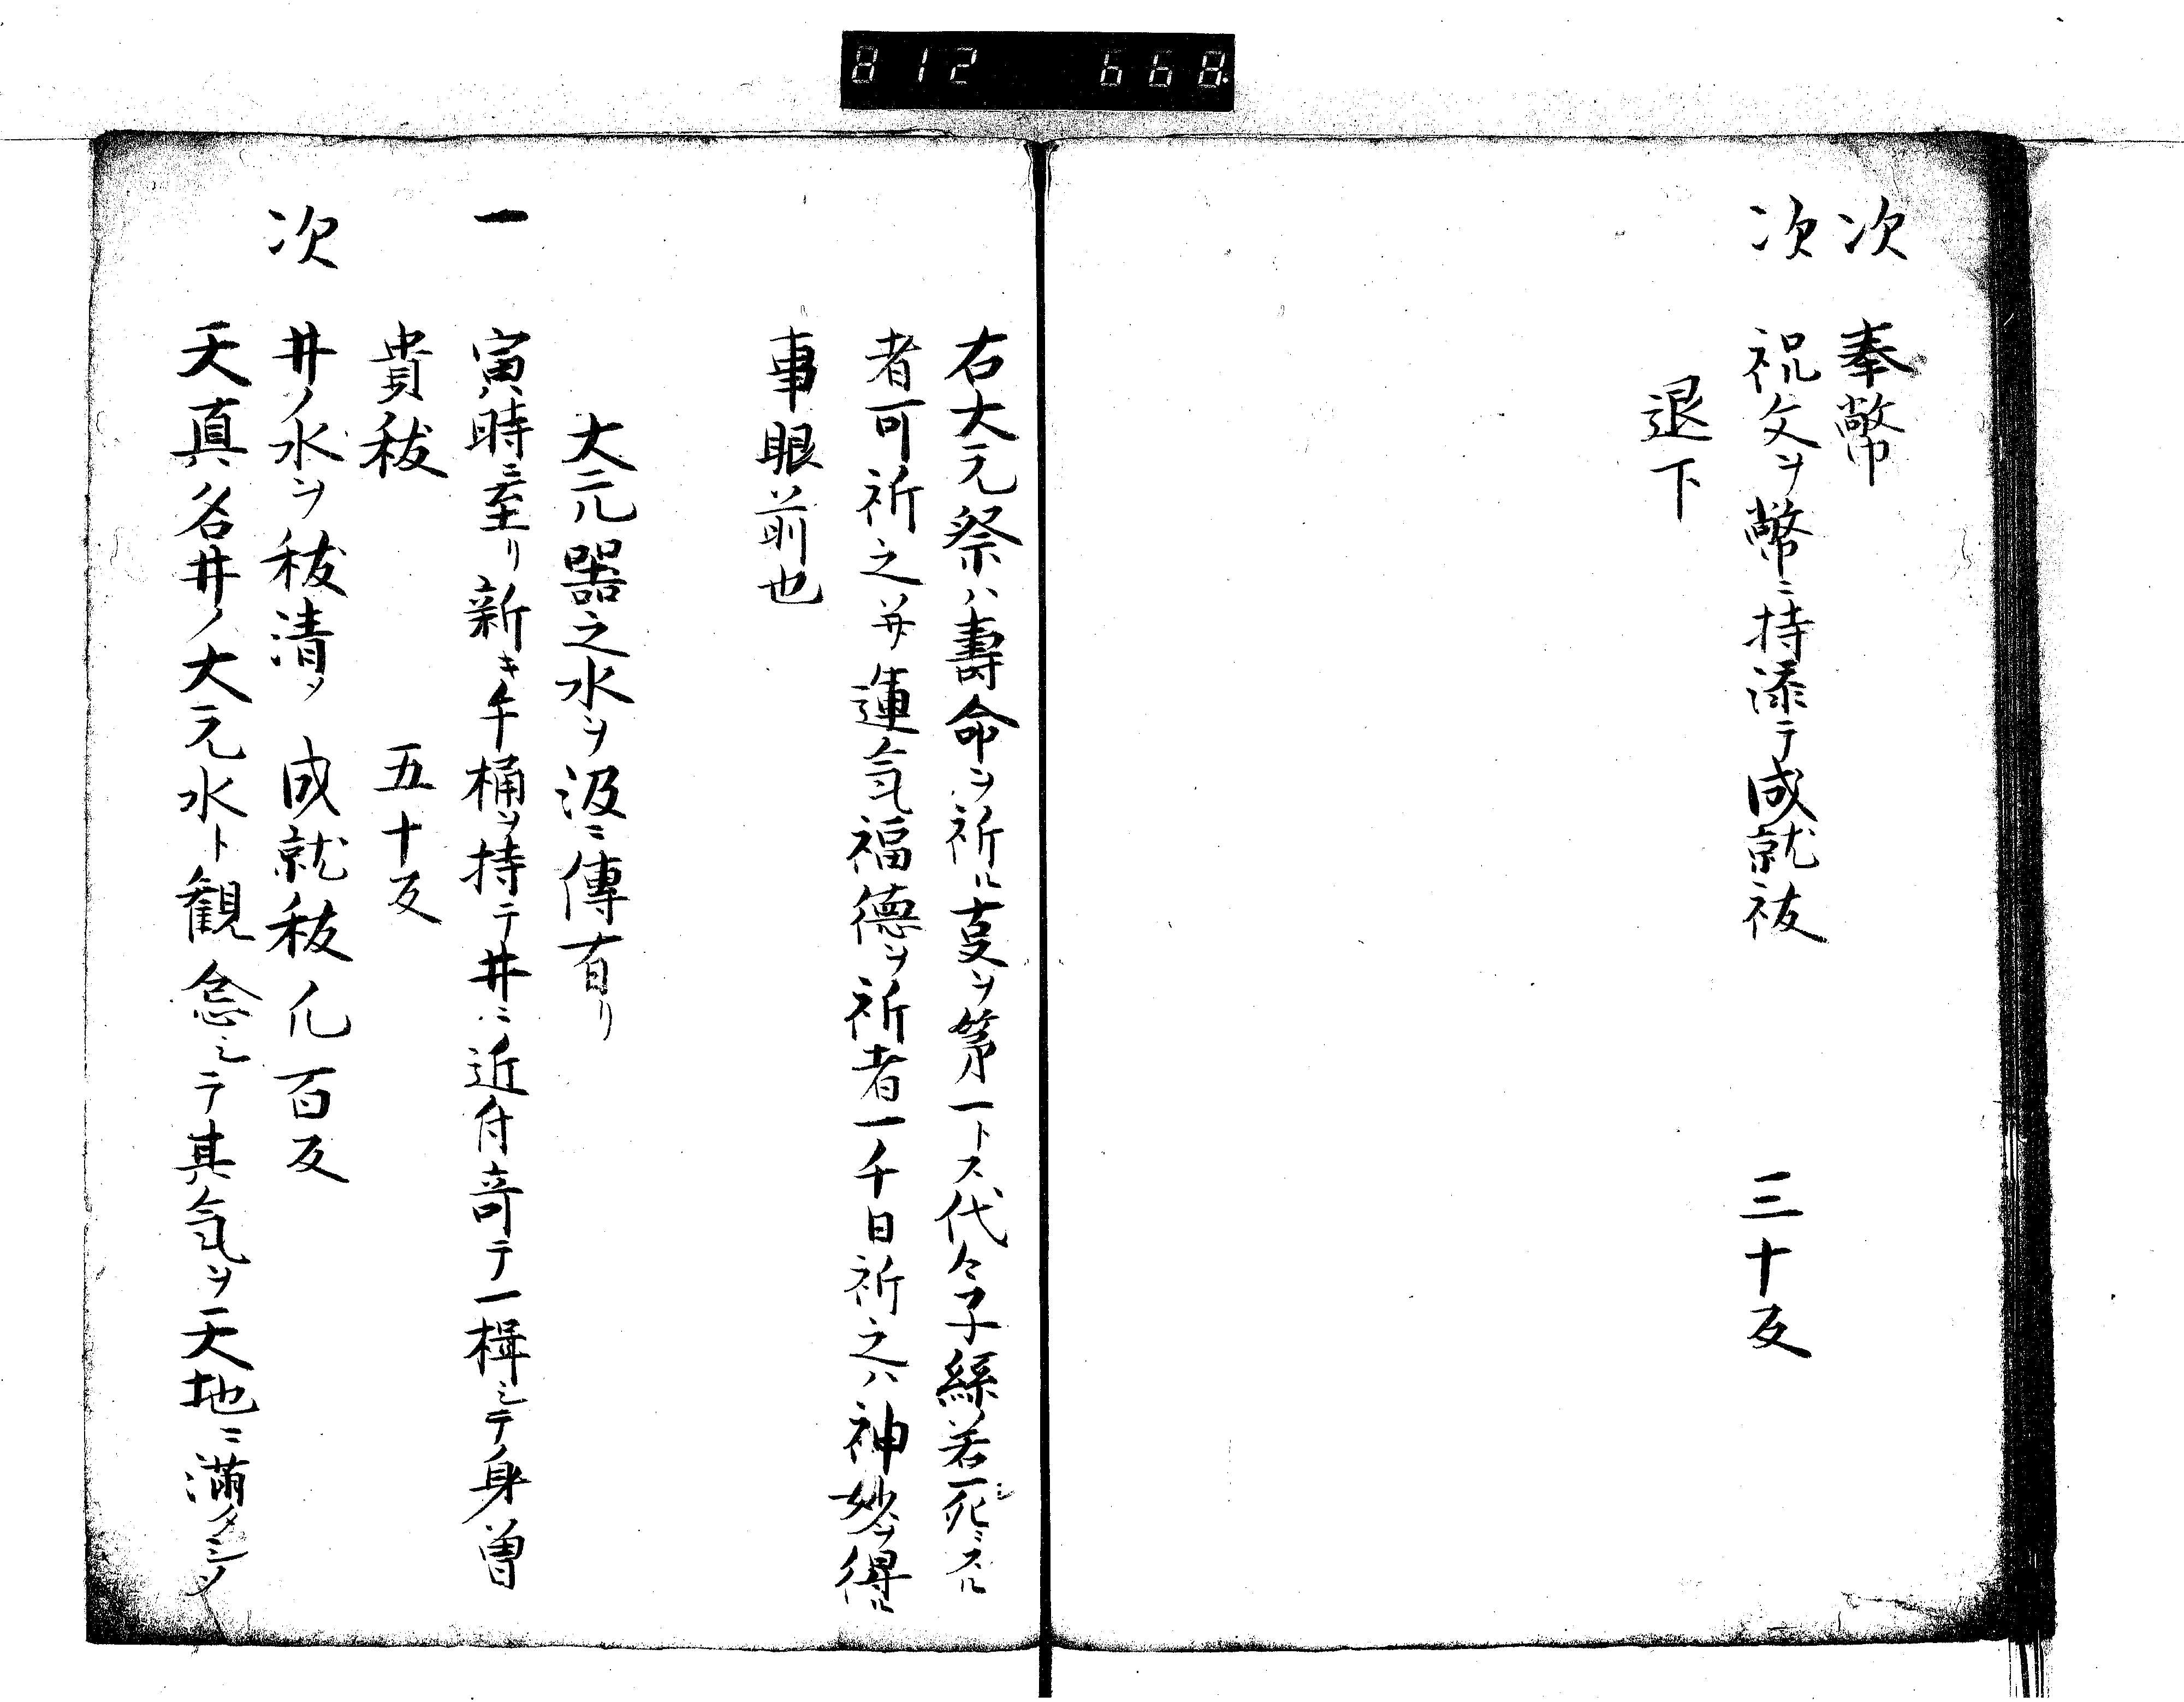 812 668
次 奉幣
次 祝文ヲ幣ニ持添テ成就祓 三十反
退下
右大元祭ハ壽命ヲ祈ル叓ヲ第一トス代々子孫若死ニスル
者可祈之并運気福徳ヲ祈者一千日祈之ハ神妙ヲ得ル
事眼前也
大元器之水ヲ汲ニ傳有リ
一 寅ノ時ニ至リ新キ手桶ヲ持テ井ニ近付寄テ一揖シテ身曽
貴秡 五十反
次 井ノ水ヲ秡清メ 成就秡 凢百反
天真名井ノ大元水ト観念シテ其気ヲ天地ニ満タシメ